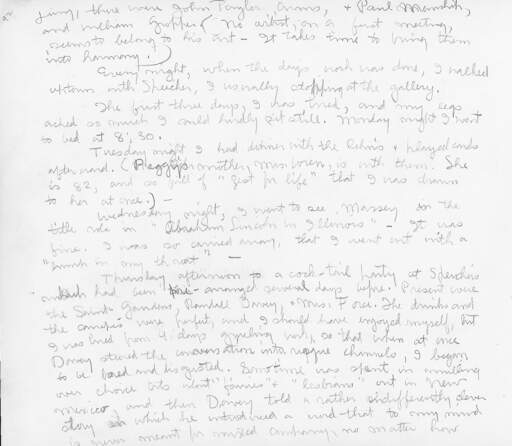 jury, there were John Taylor Arms, + Paul Manship,
and William Gropper (No artist, on a first meeting,
seems to belong to his art - It takes time to bring them
into harmony.)
Every night, when the days work was done, I walked
uptown with Speicher, I usually stopping at the gallery.
The first three days, I was tired, and my legs
ached so much I could hardly sit still. Monday night I went
to bed at 8:30.
Tuesday night I had dinner with the Rehn's + played cards
afterward. (Peggy's mother, Mrs. is with them. She
is 82, and so full of "zest for life" that I was drawn
to her at once.) -
Wednesday night, I went to see Massey in the
title role in "Abraham Lincoln in Illinois" - It was
fine. I was so carried away, that I went out with a
"lump in my throat" -
Thursday afternoon to a cock-tail party at Speicher's
which had been arranged several days before. Present were
the Saint Gaudens, Randall Davey, + Mrs. Force. The drinks and
the canapés were perfect, and I should have enjoyed myself, but
I was tired from 4 days grueling work, so that when at once
Davey steered the conversation into risque channels, I began
to be bored and disgusted. Sometime was spent in chuckling
over choice bits about "fairies" + "lesbians" out in New
Mexico, and then Davey told a rather indifferently clever
story in which he introduced a word that to my mind
is never meant for mixed company, no matter how